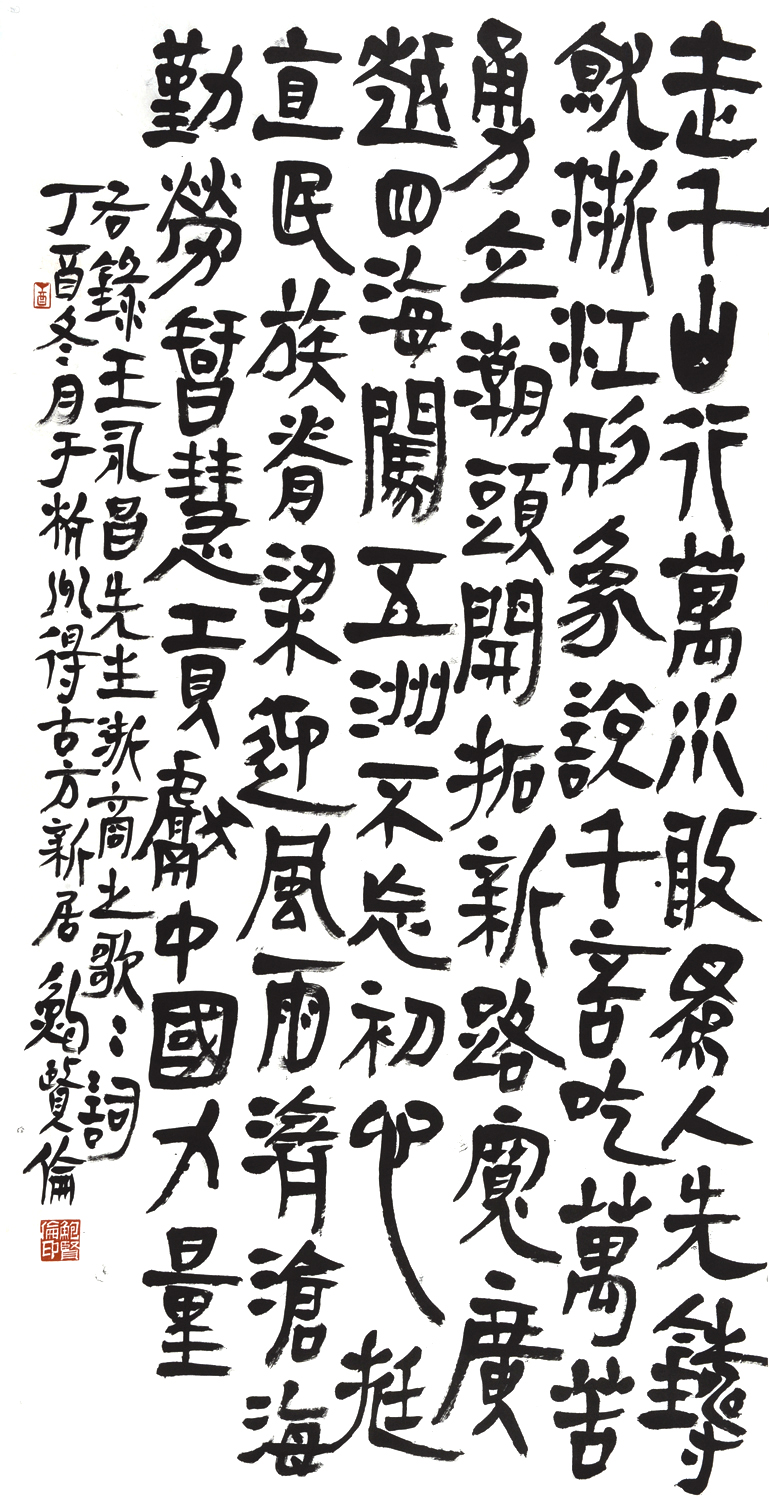 走千山行萬水敢爲人先鑄
就浙江形象說千言吃萬苦
勇立潮頭開拓新路寬廣
越四海闖五洲不忘初心挺
直民族脊梁迎風雨濟滄海
勤勞智慧貢獻中國力量
右錄王永昌先生浙商之歌〻詞
丁酉冬月于杭州得古方新居鮑賢倫
酉
鮑賢倫印